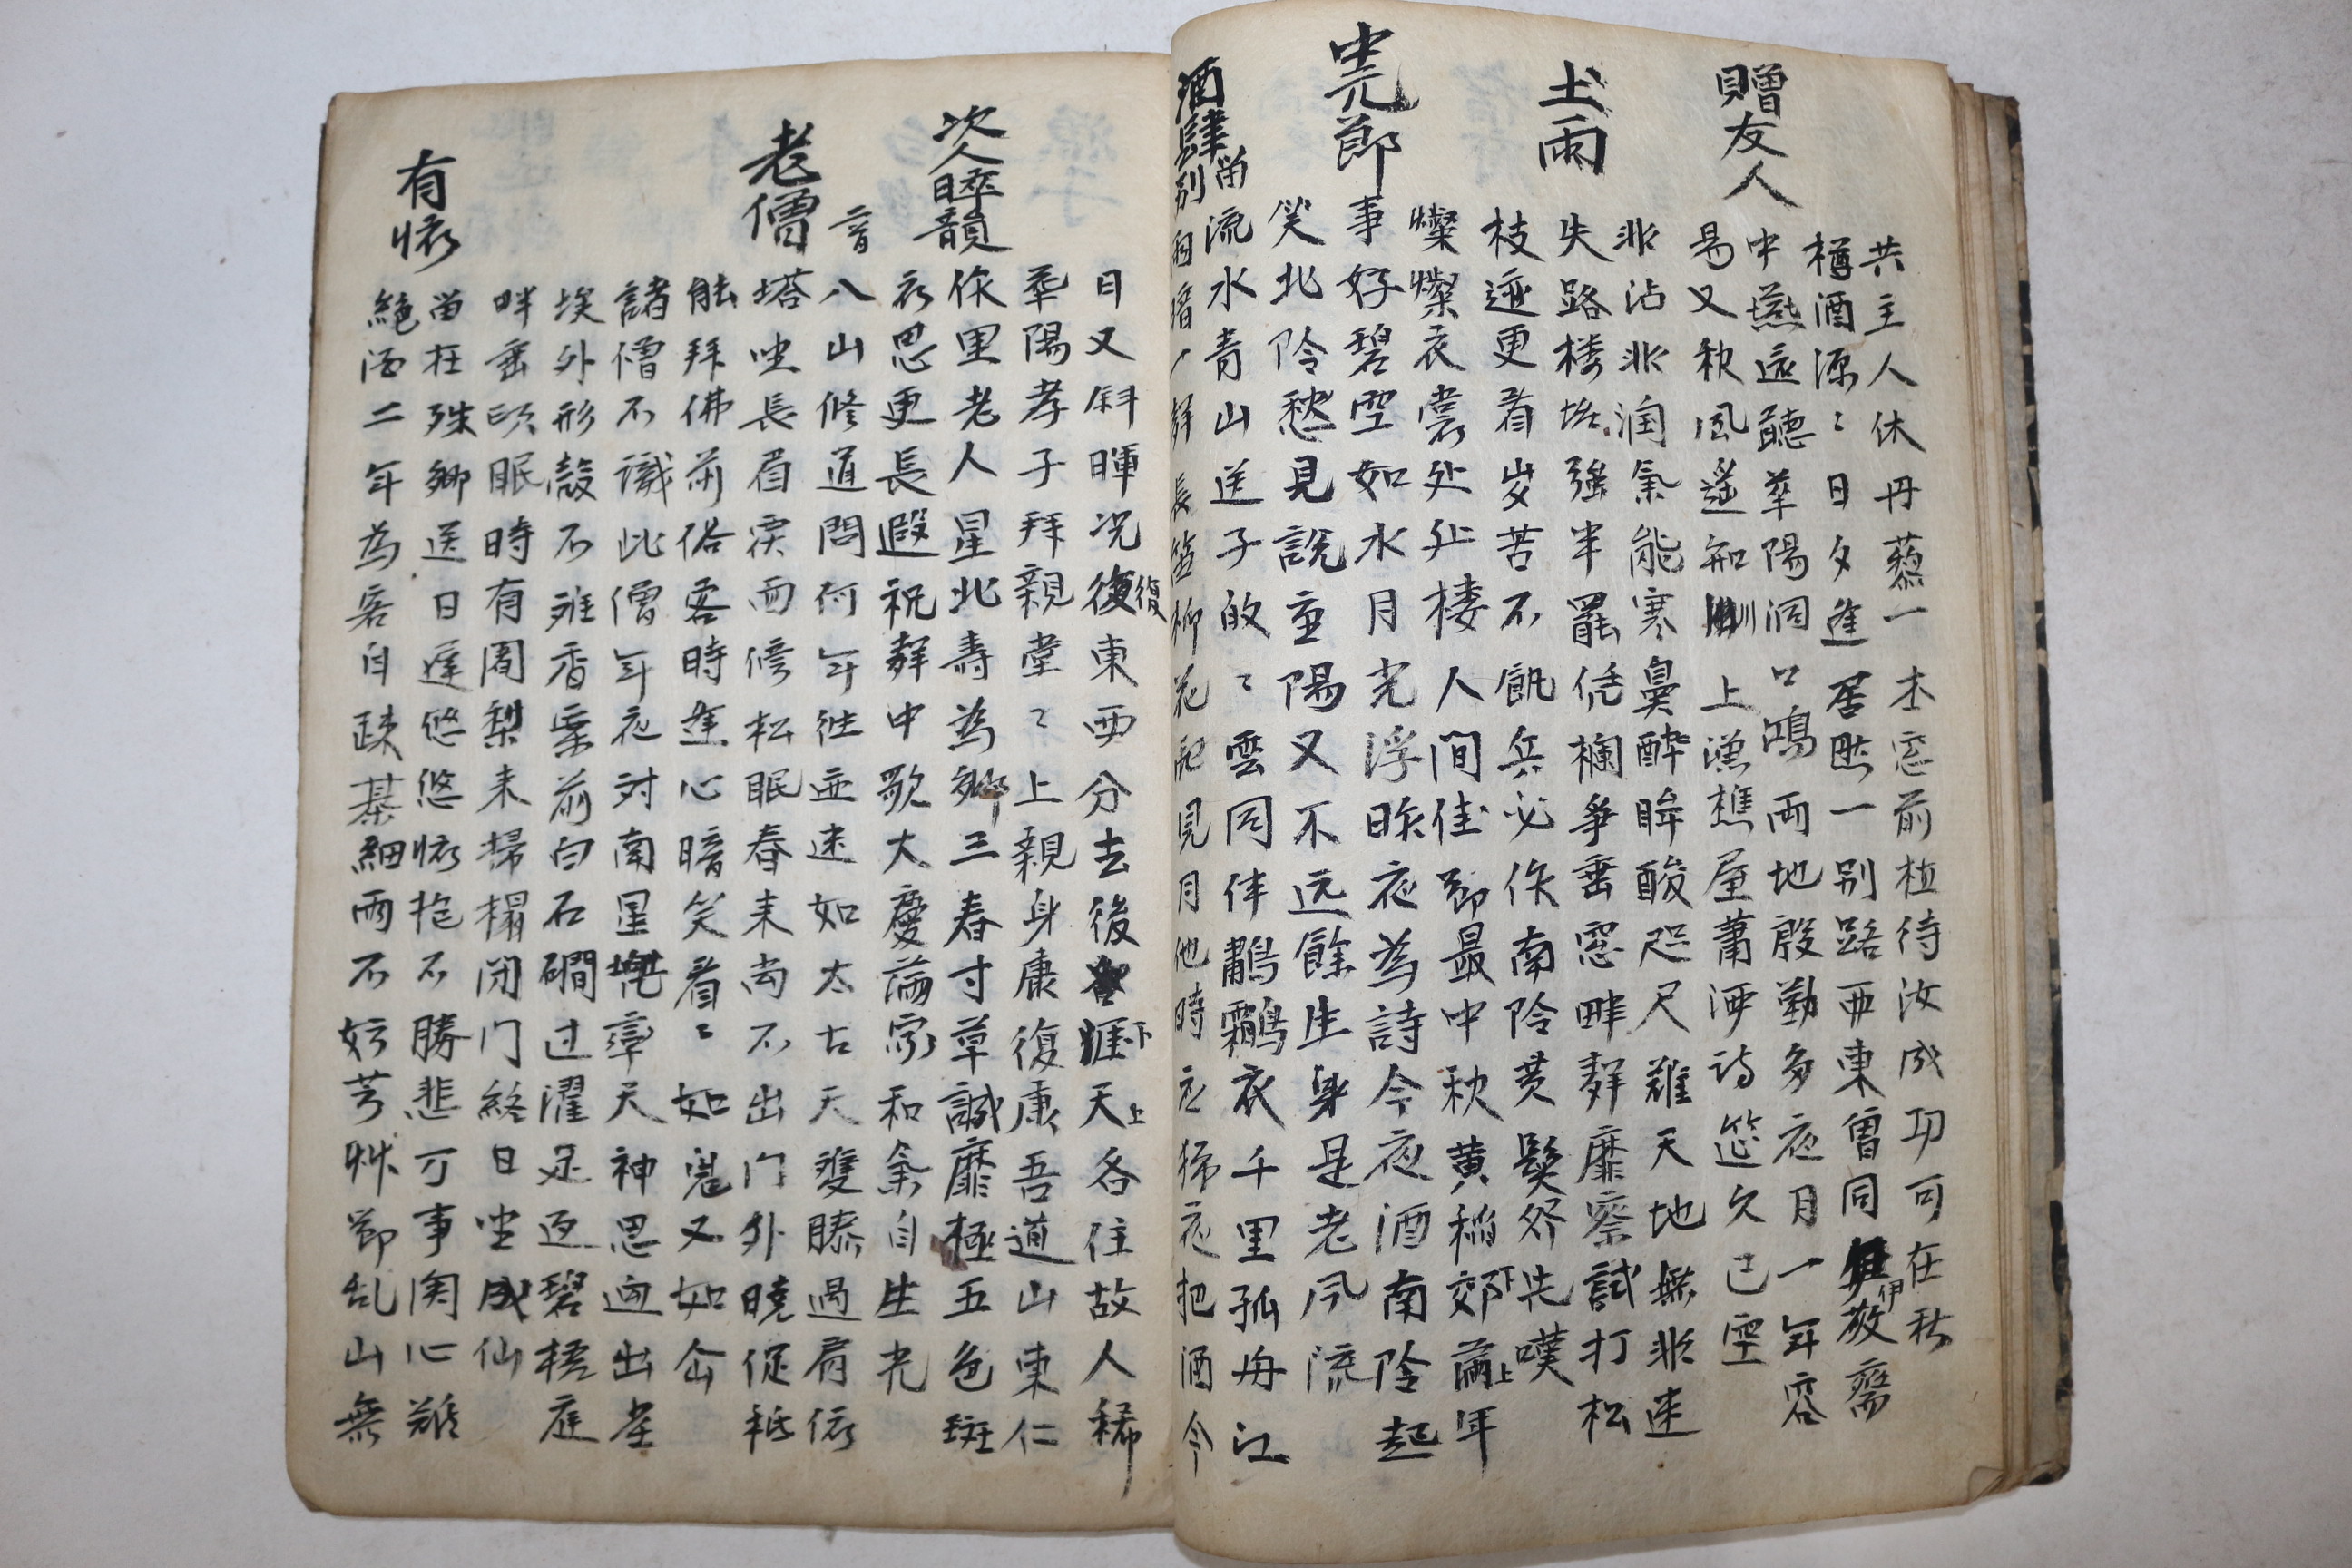 共主人休丹藜一本窓前植待汝成功可在秋
贈友人
樽酒源〻日夕進居然一别路西東曽同伊敬齋
中燕遠聽華陽洞口鴻両地殷勤多夜月一年容
易又秋風遥知上漁樵屋蕭洒詩筵久已空
土雨
非沾非潤氣能寒鼻酔眸酸咫尺難天地無非迷
失路楼坮強半罷凭欄争垂窓畔聲靡察試打松
枝迹更看岁苦不飢兵必作南阾黄髮祭先嘆
中元節
燦燦衣裳处处楼人間佳節最中秋黄稲郊下满上年
事好碧空如水月光浮昨夜為詩今夜酒南阾起
笑北阾愁見説重陽又不远餘生身是老风流
酒肆留别
流水青山送子的〻雲同伴鸘衣千里孤舟江
雨暗一聲長笛柳花见月他時夜把酒今
日又斜暉况復東西分去後涯下天上各住故人稀
次人晬韻
華陽孝子拜親堂〻上親身康復康吾道山東仁
作里老人星北壽為鄉三春寸草誠靡極五色斑
衣思更長遐祝聲中歌大慶满家和氣自生光
老僧
二首
八山修道問何年往迹迷如太古天雙膝過肩依
塔坐長眉戻面倚松眠春来尚不出门外曉促秪
能拜佛前俗客時逢心暗笑看〻如鬼又如仚
諸僧不識此僧年夜対南星塊辜天神思迥出崖
埃外形殼不难香案前白石磵过濯足返碧梧庭
畔垂頭眠時有阇梨来掃榻闭门終日坐成仙
有懷
留在殊鄉送日遅悠悠懷抱不勝悲丁事関心難
絶酒二年為客自疎棊細雨不妨芳艸節乱山無